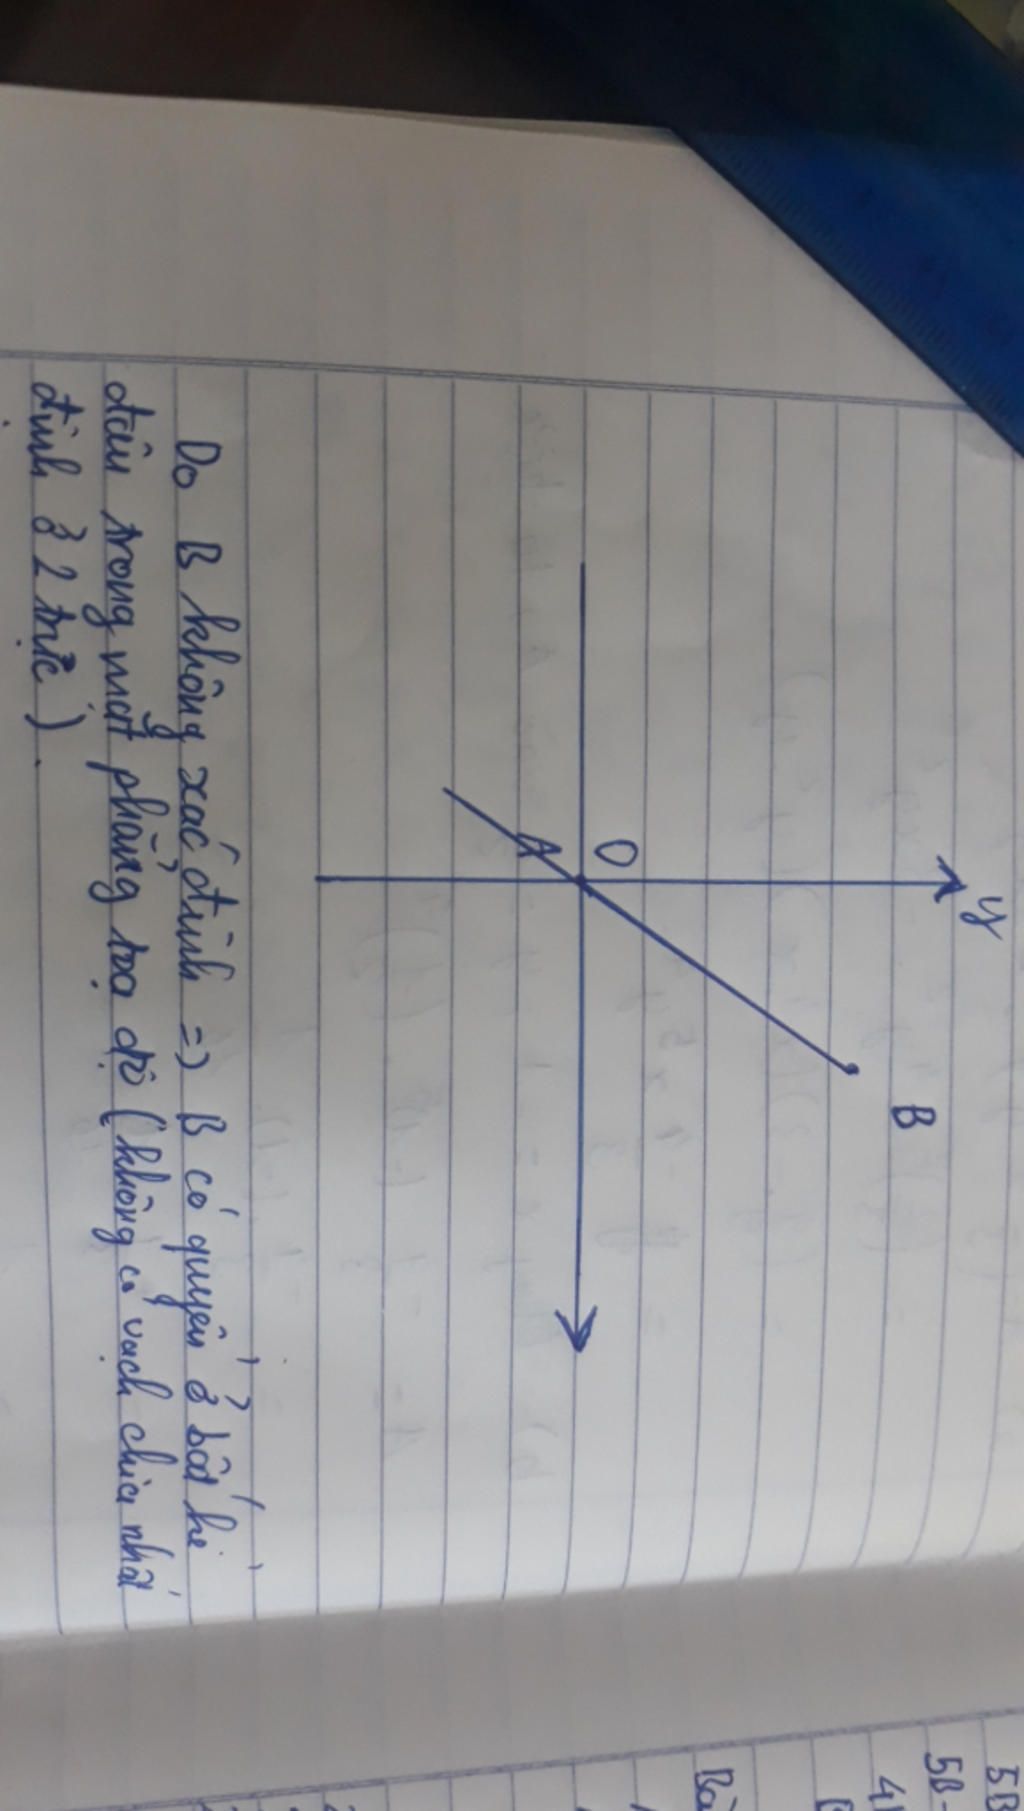 y
B
O
A
Do B không xác định => B có quyền ở bất kì
đâu trong mặt phẳng toạ độ (không có vạch chia nhất
định ở 2 trục).
5B
5B-
4
Bà